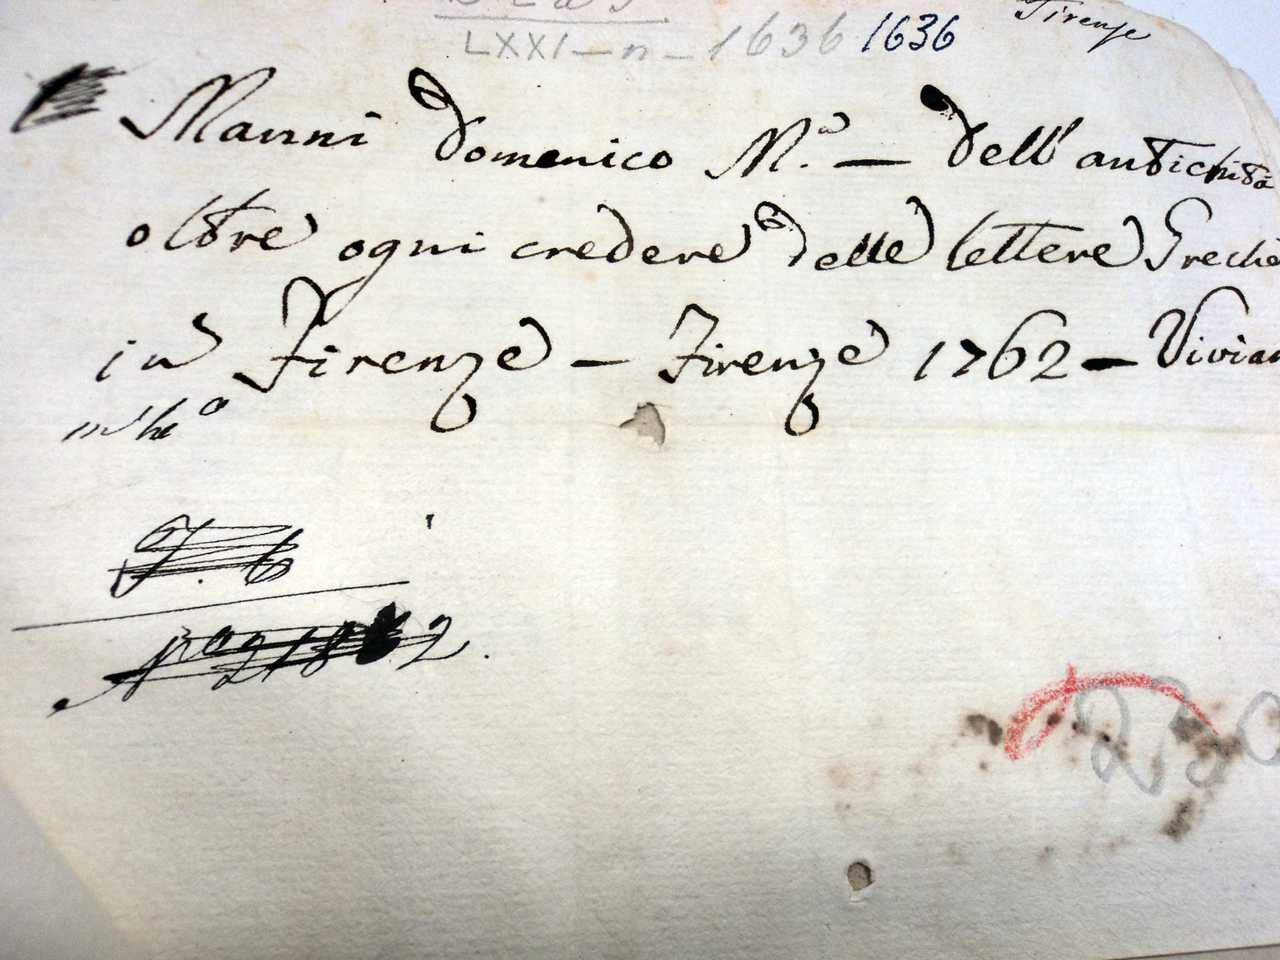 Firenze
LXXI-n-1636 1636
Manni Domenico M.ª — dell' antichità
oltre ogni credere delle lettere Greche
in Firenze — Firenze 1762 — Vivian
in 4º
230